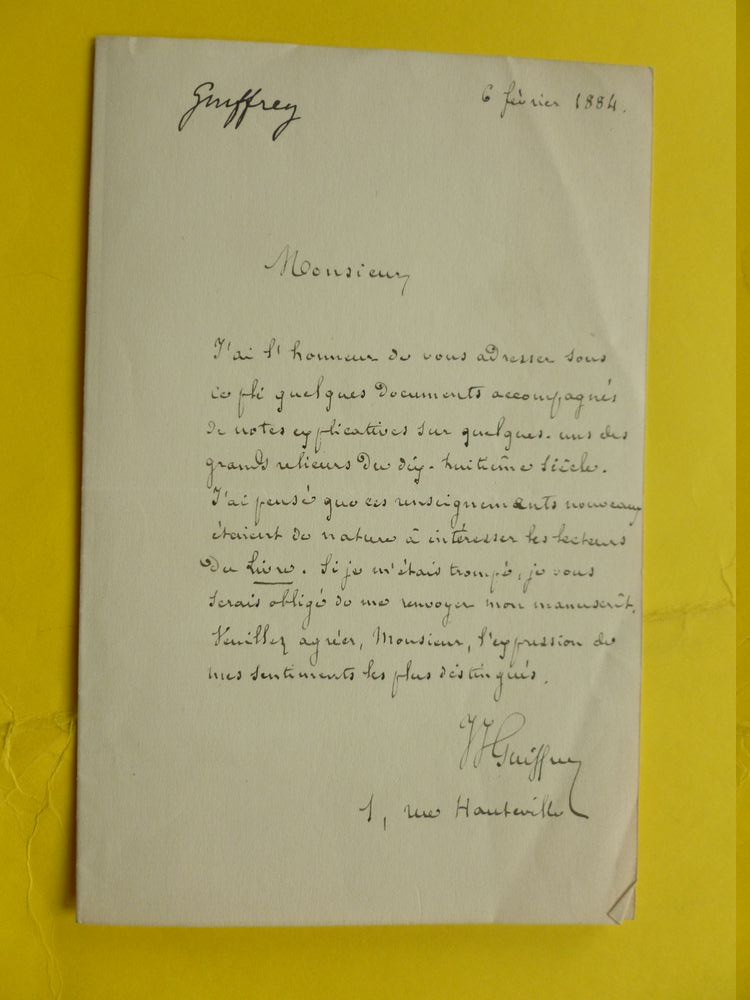 Guiffrey
6 février 1884.
Monsieur,
J'ai l'honneur de vous adresser sous
ce pli quelques documents accompagnés
de notes explicatives sur quelques-uns des
grands relieurs du dix-huitième siècle.
J'ai pensé que ces renseignements nouveaux
étaient de nature à intéresser les lecteurs
du Livre. Si je m'étais trompé, je vous
serais obligé de me renvoyer mon manuscrit.
Veuillez agréer, Monsieur, l'expression de
mes sentiments les plus distingués.
JJ Guiffrey
1, rue Hauteville